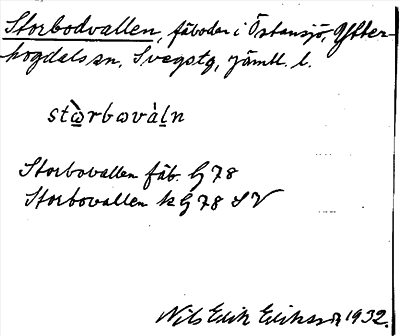 Storbodvallen, fäboder i Östansjö, Ytter-
hogdals sn, Svegstg, Jämtl. l.
stὼ̲rbωvàl̲n
Storbovallen fäb. G 78
Storbovallen k G 78 SV
Nils Erik Eriksson 1932.